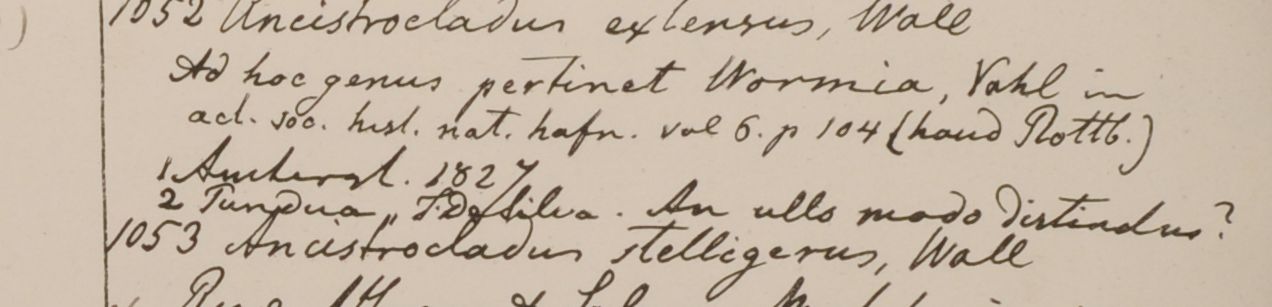 1052 Ancistrocladus extensus, Wall
Ad hoc genus pertinet Wormia, Vahl in
act. soc. hist. nat. hafn. vol 6. p 104 (haud Rottb.)
1 Amherst. 1827
2 Tundua „ F.DeSilva. An ullo modo distinctus?
1053 Ancistrocladus stelligerus, Wall